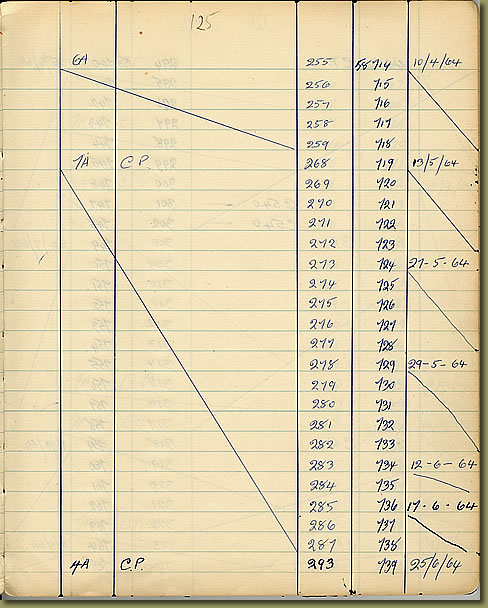 125
6A 255 58714 10/4/64
256 715
257 716
258 717
259 718
7A C.P. 268 719 13/5/64
269 720
270 721
271 722
272 723
273 724 27-5-64
274 725
275 726
276 727
277 728
278 729 29-5-64
279 730
280 731
281 732
282 733
283 734 12-6-64
284 735
285 736 17-6-64
286 737
287 738
4A C.P. 293 739 25/6/64